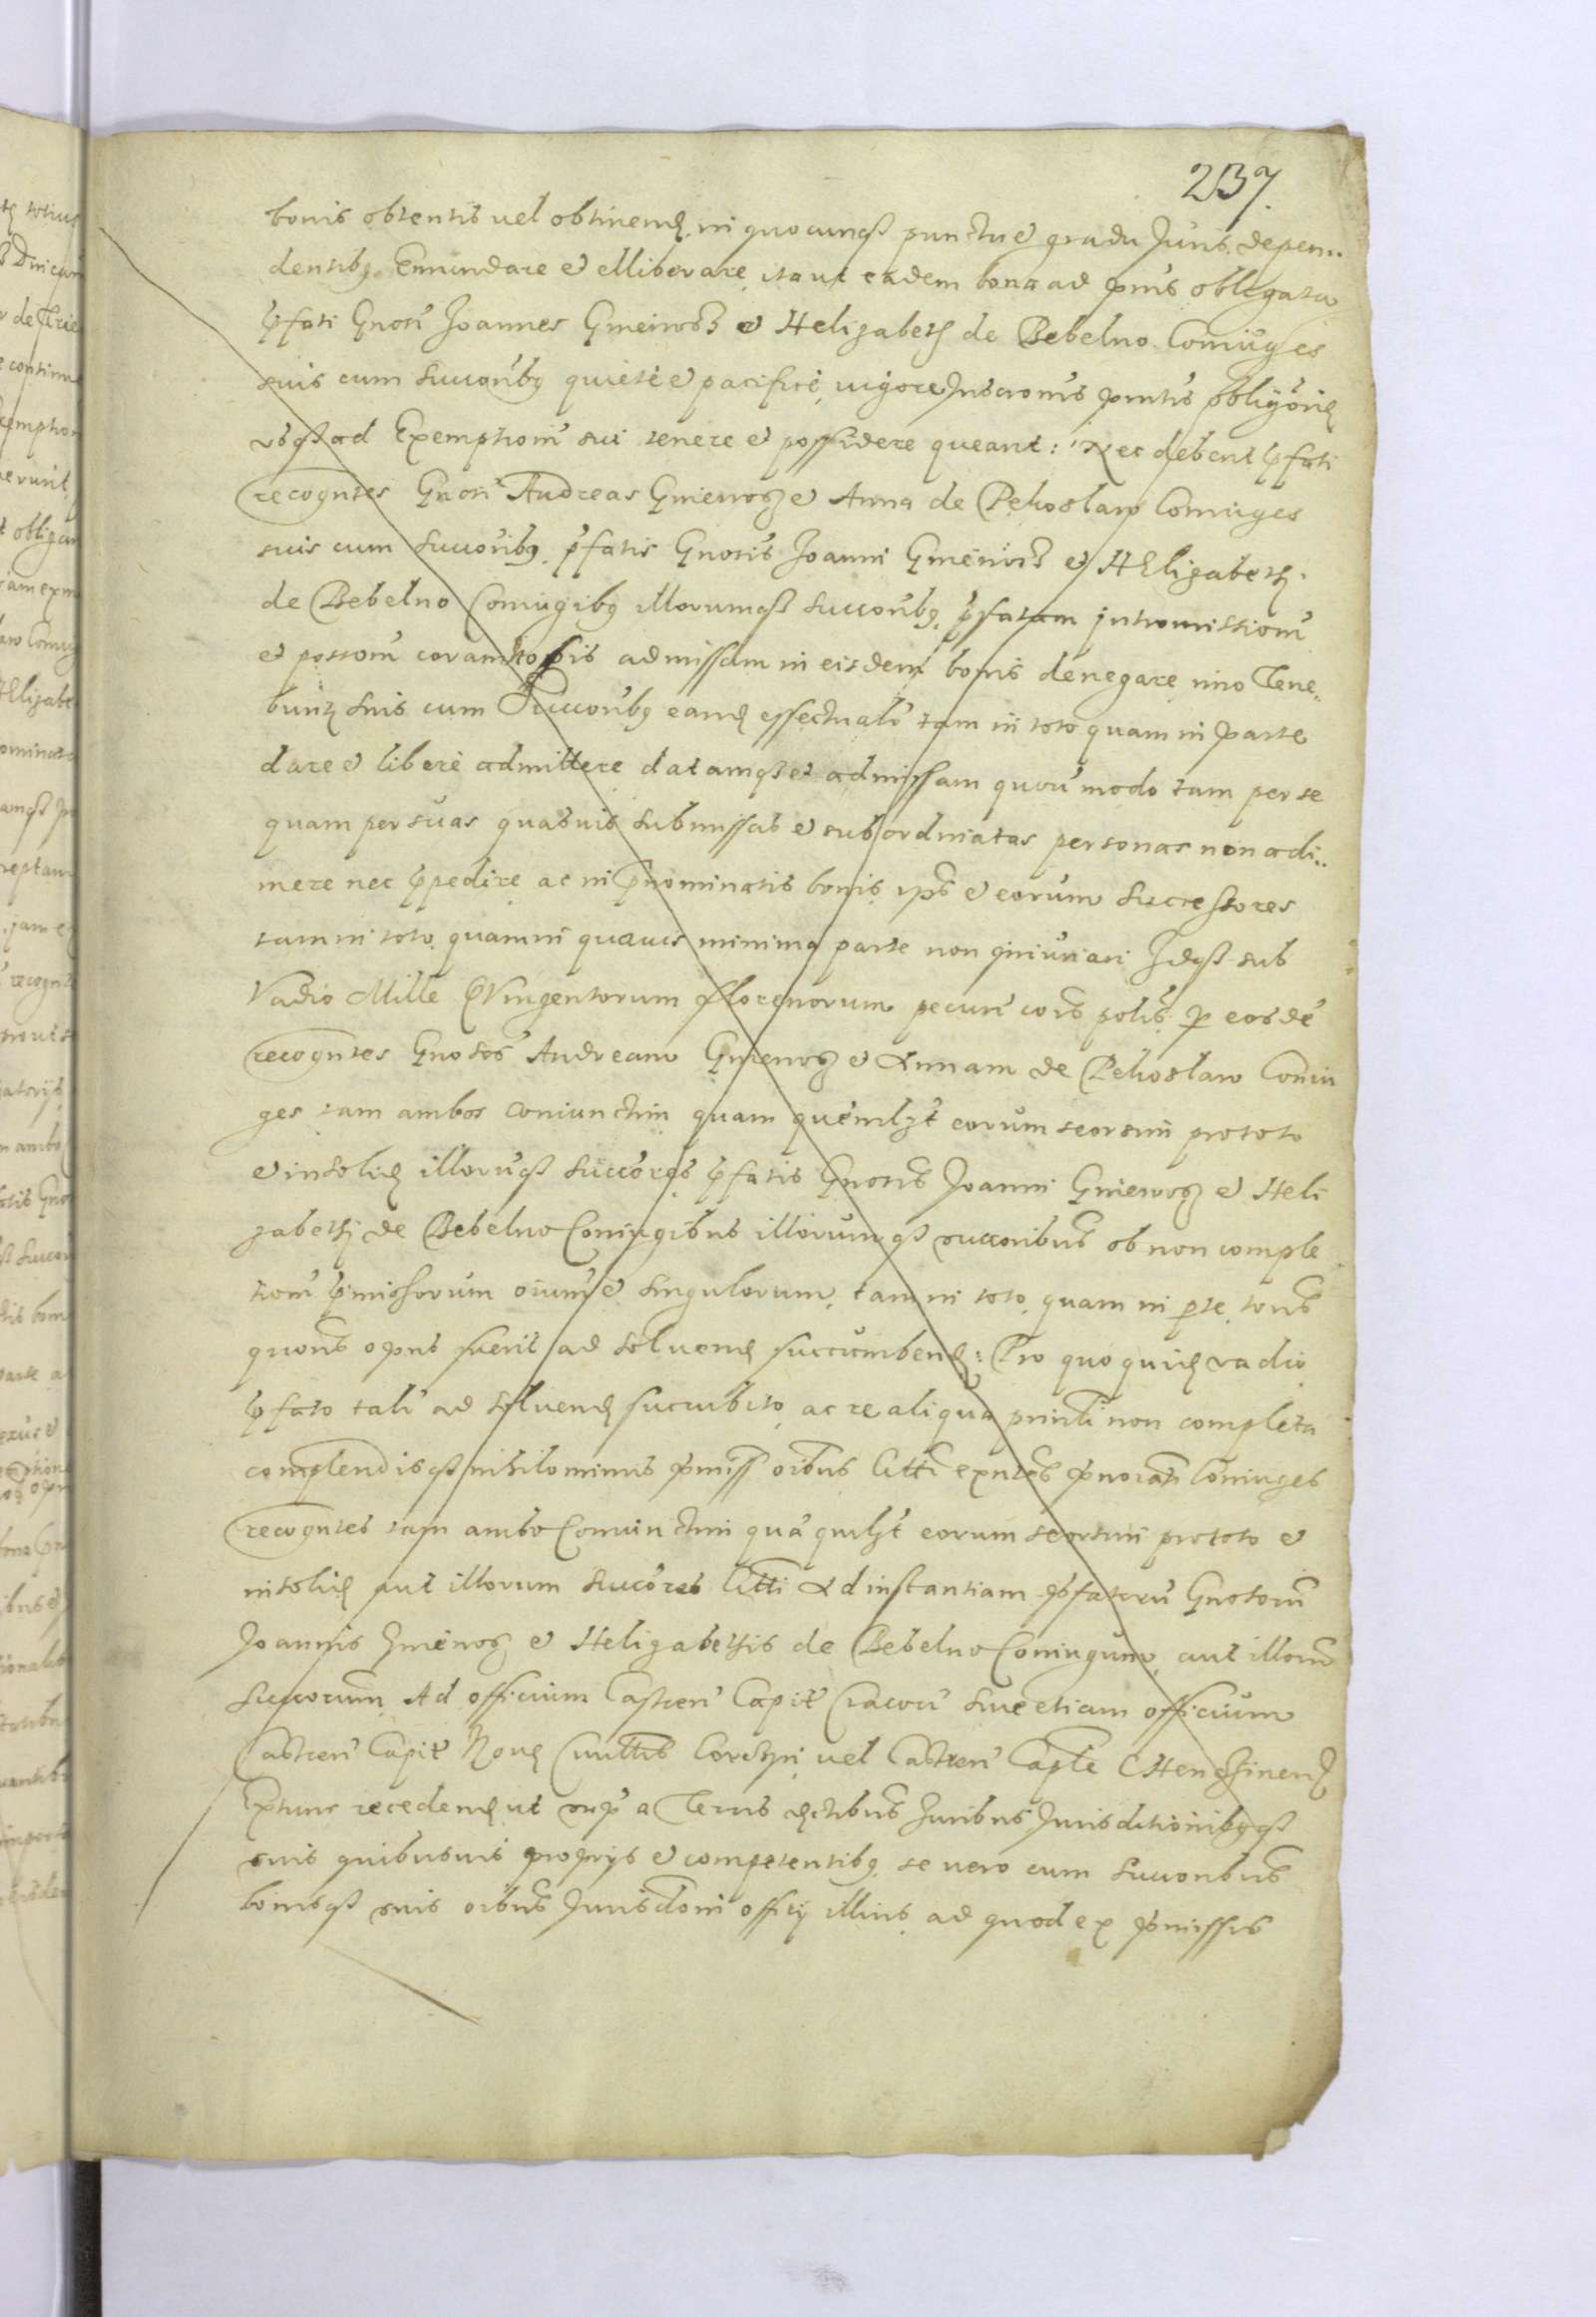 237.
bonis obtentis vel obtinend in quocunqß punctu et gradu Juris depen..
dentibq Emundare et elliberare, ita ut eadem bona ad pnns obligata
pfati Gnosi Joannes Gniewosz et Helizabeth de Bebelno Coniuges
suis cum Succoribq quiete et pacifice, vigore Inscrionis pntis obligorie
usqß ad Exemptiom sui tenere et possidere queant: Nec debent pfati
recogntes Gnosi Andreas Gniewosz et Anna de Pelvoslaw Coniuges
suis cum Succoribq pfatis Gnosis Joanni Gniewosz et HElizabeth
de Bebelno Coniugibq illorumqß Succoribq pfatam intromissiom
et possom coram admissam in eisdem bonis denegare imo Tene..
buntur suis cum Succoribq eand effectuali tam in toto quam in parte
dare et libere admittere datamqß et admissam quovis modo tam per se
quam per suas quasvis submissas et subordinatas personas non adi..
mere nec ppedire ac in pnominatis bonis ipos et eorum Successores
tam in toto quam in quavis minima parte non iniuriari Idqß sub
Vadio Mille Quingentorum Florenorum pecun cois polis p eosde
recogntes Gnosos Andream Gniewosz et Annam de Pelvoslaw Coniu
ges tam ambos coniunctim quam quemlzt eorum seorsim pro toto
et insolid illoruqß succores pfatis Gnosis Joanni Gniewosz et Heli
zabethi de Bebelno Coniugibus illorumqß succoribus ob non comple
tiom pmissorum oium et singulorum, tam in toto quam in pte, toties
quoties opus fuerit ad solvend succumbend: Pro quo quid vadio
pfato tali ad solvend succubito, ac re aliqua pmissi non completa
complendisqß nihilominus pmiss oibus citti pnoiati Coniuges
recogntes tam ambo Coniunctim qua quilzt eorum seorsim pro toto et
insolid aut illorum succores Citti Ad instantiam pfatoru Gnosoru
Joannis Gniewosz et Helizabethis de Bebelno Coniugum, aut illoru
Succorum Ad officium Castren Capit Cracovi sive etiam officium
Castren Capit Nove Civittis Corczyn vel Castren Capte CHencinen
Extunc recedend ut sup a Terris dctibus Juribus Jurisditionibqqß
suis quibusvis proprijs et competentibq se vero cum Succoribus
bonisqß suis oibus Jurisdioni officij illius ad quod ex pmissis